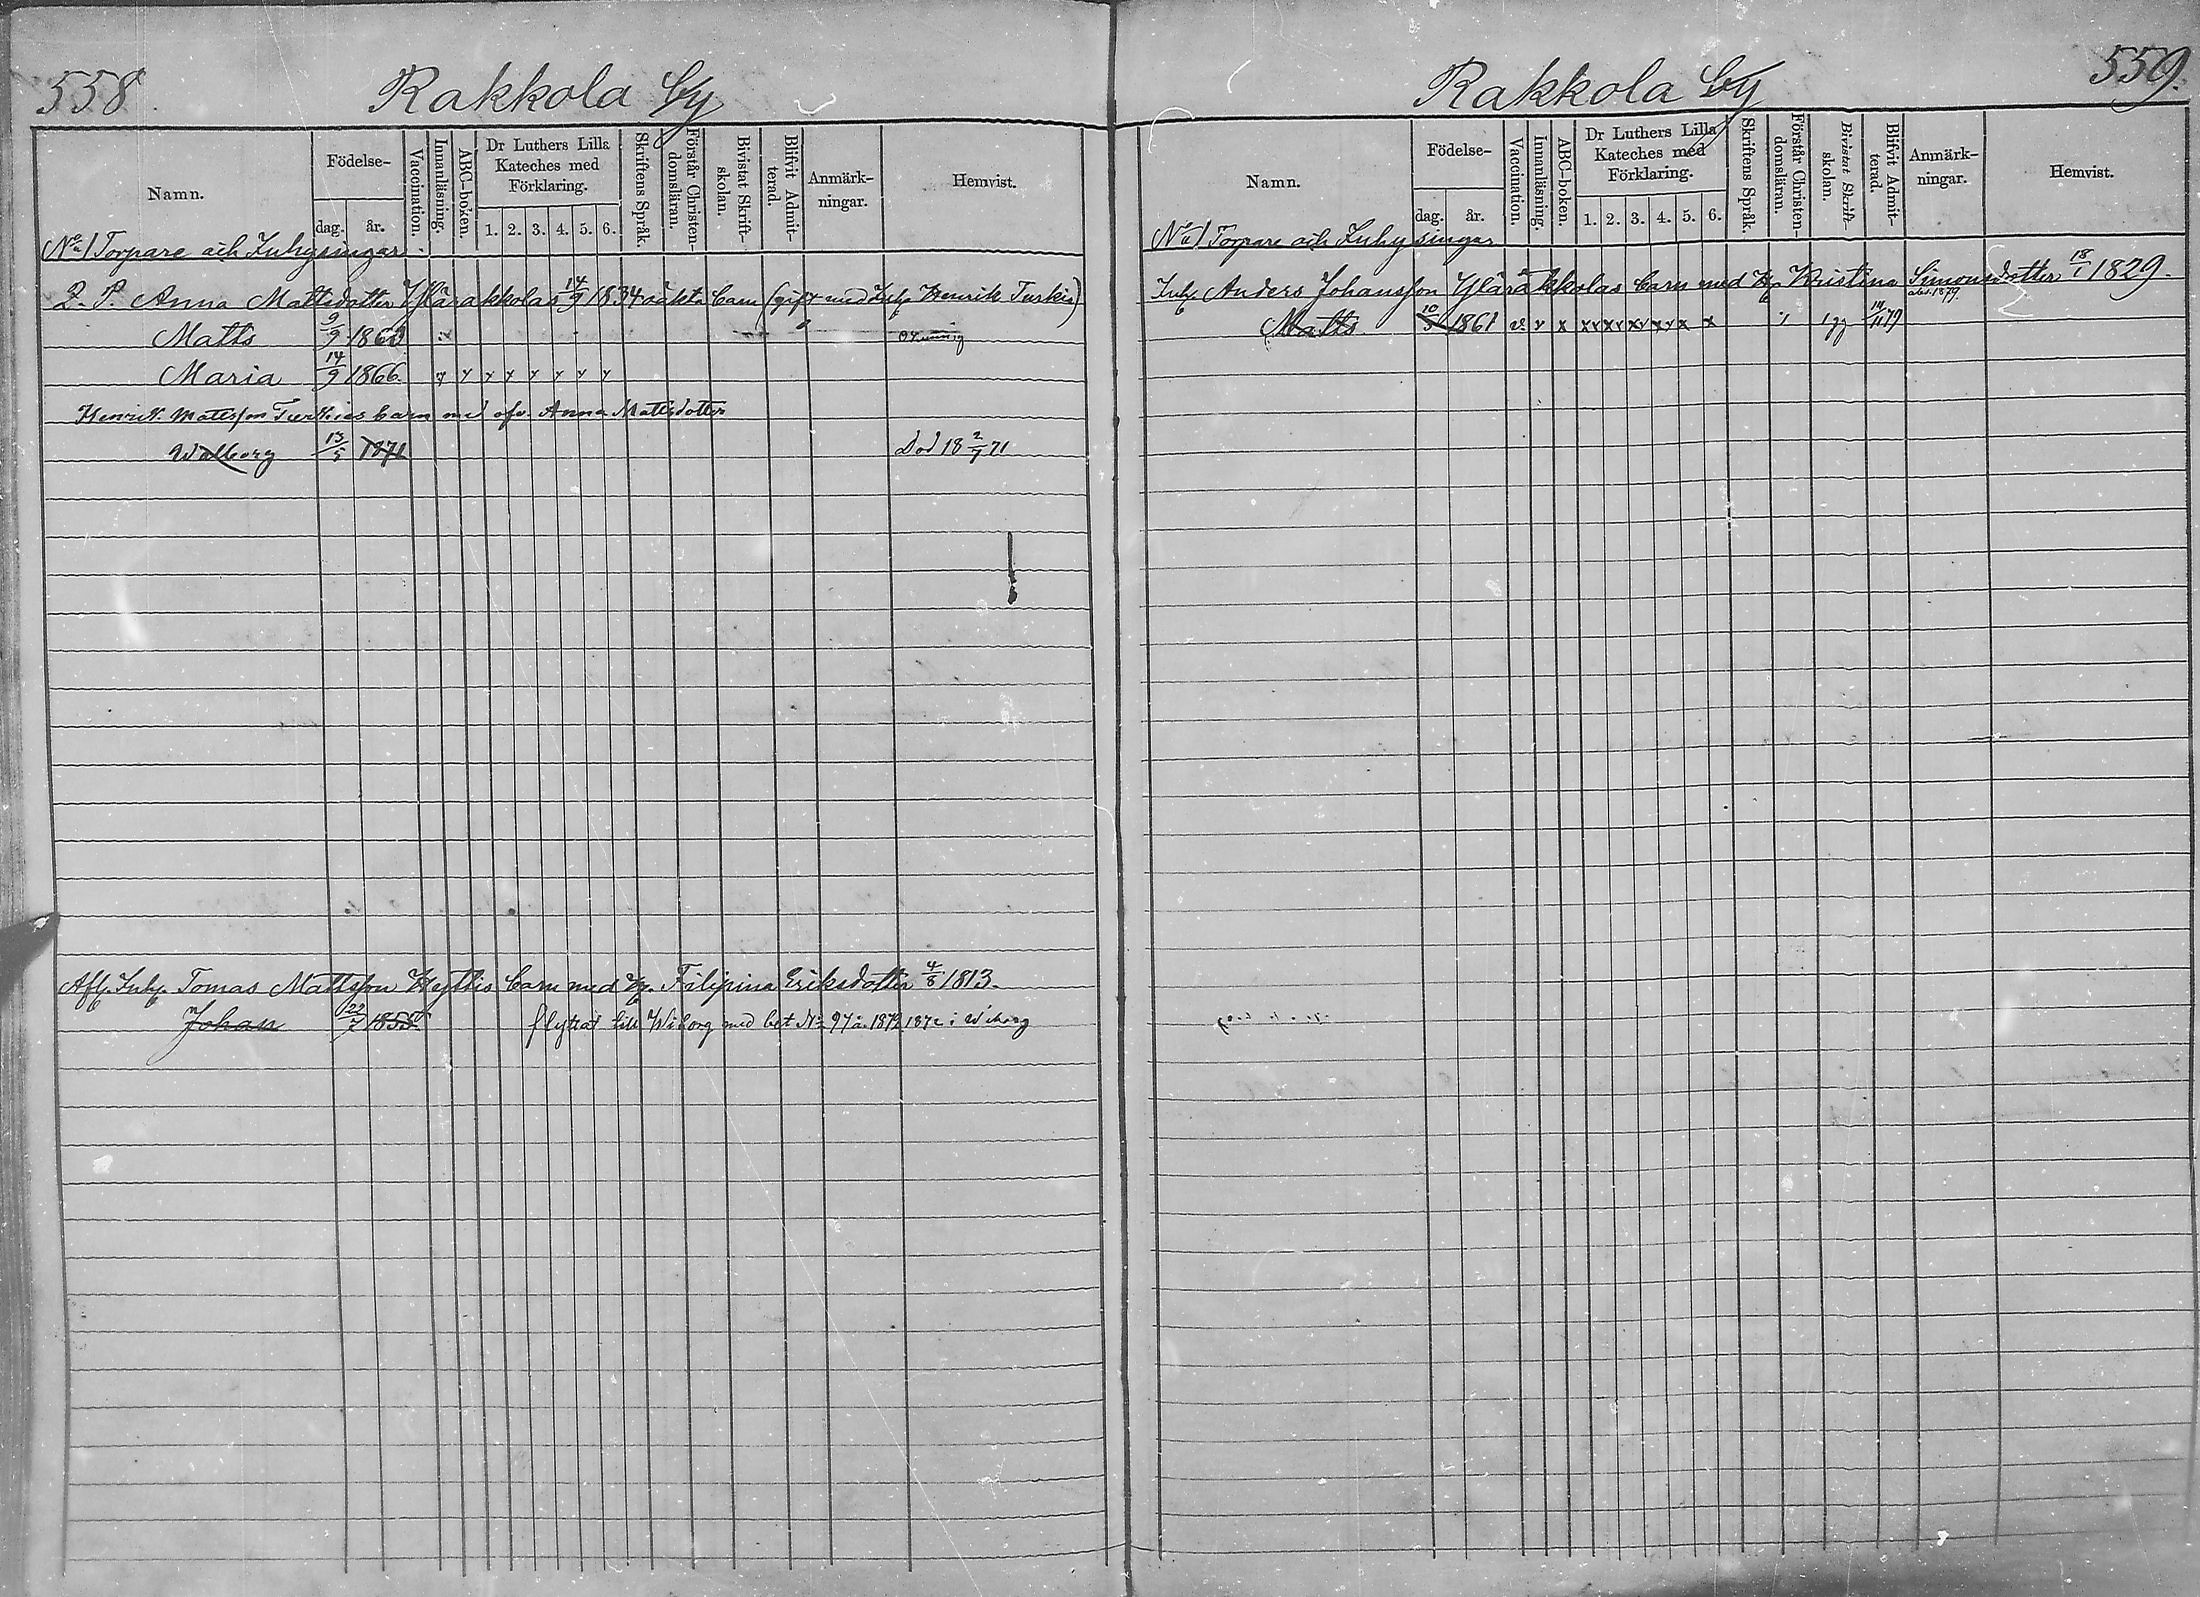 558. Rakkola by
Namn. Födelse- dag. år. Vaccination. Innanläsning. ABC-boken. Dr Luthers Lilla Kateches med Förklaring. 1. 2. 3. 4. 5. 6. Skriftens Språk. Förstår Christendomsläran. Bivistat Skriftskolan. Blifvit Admitterad. Anmärkningar. Hemvist.
No 1 Torpare och Inhysingar
Q. P. Anna Mattsdotter Ylärakkolas 14/9 1834 oäkta barn (gift med Inh. Henrik Turkia)
Matts 9/9 1860
Maria 14/9 1866
Henrik Mattsson Turkias barn med ofv. Anna Mattsdotter
Walborg 13/5 1871 Död 18 2/7 71
Afl. Inh. Tomas Mattsson Heyttis barn med H. Filipina Eriksdotter 4/8 1813.
Johan 22/7 1855 flyttat till Wiborg med bet No 97 a. 1872 1872 i Wiborg
559. Rakkola by
Namn. Födelse- dag. år. Vaccination. Innanläsning. ABC-boken. Dr Luthers Lilla Kateches med Förklaring. 1. 2. 3. 4. 5. 6. Skriftens Språk. Förstår Christendomsläran. Bivistat Skriftskolan. Blifvit Admitterad. Anmärkningar. Hemvist.
No 1 Torpare och Inhysingar
Inh. Anders Johansson Ylärakkolas barn med H. Kristina Simonsdotter 18/1 1829.
Matts 10/3 1861 v x x x x x x x x 14/11 79